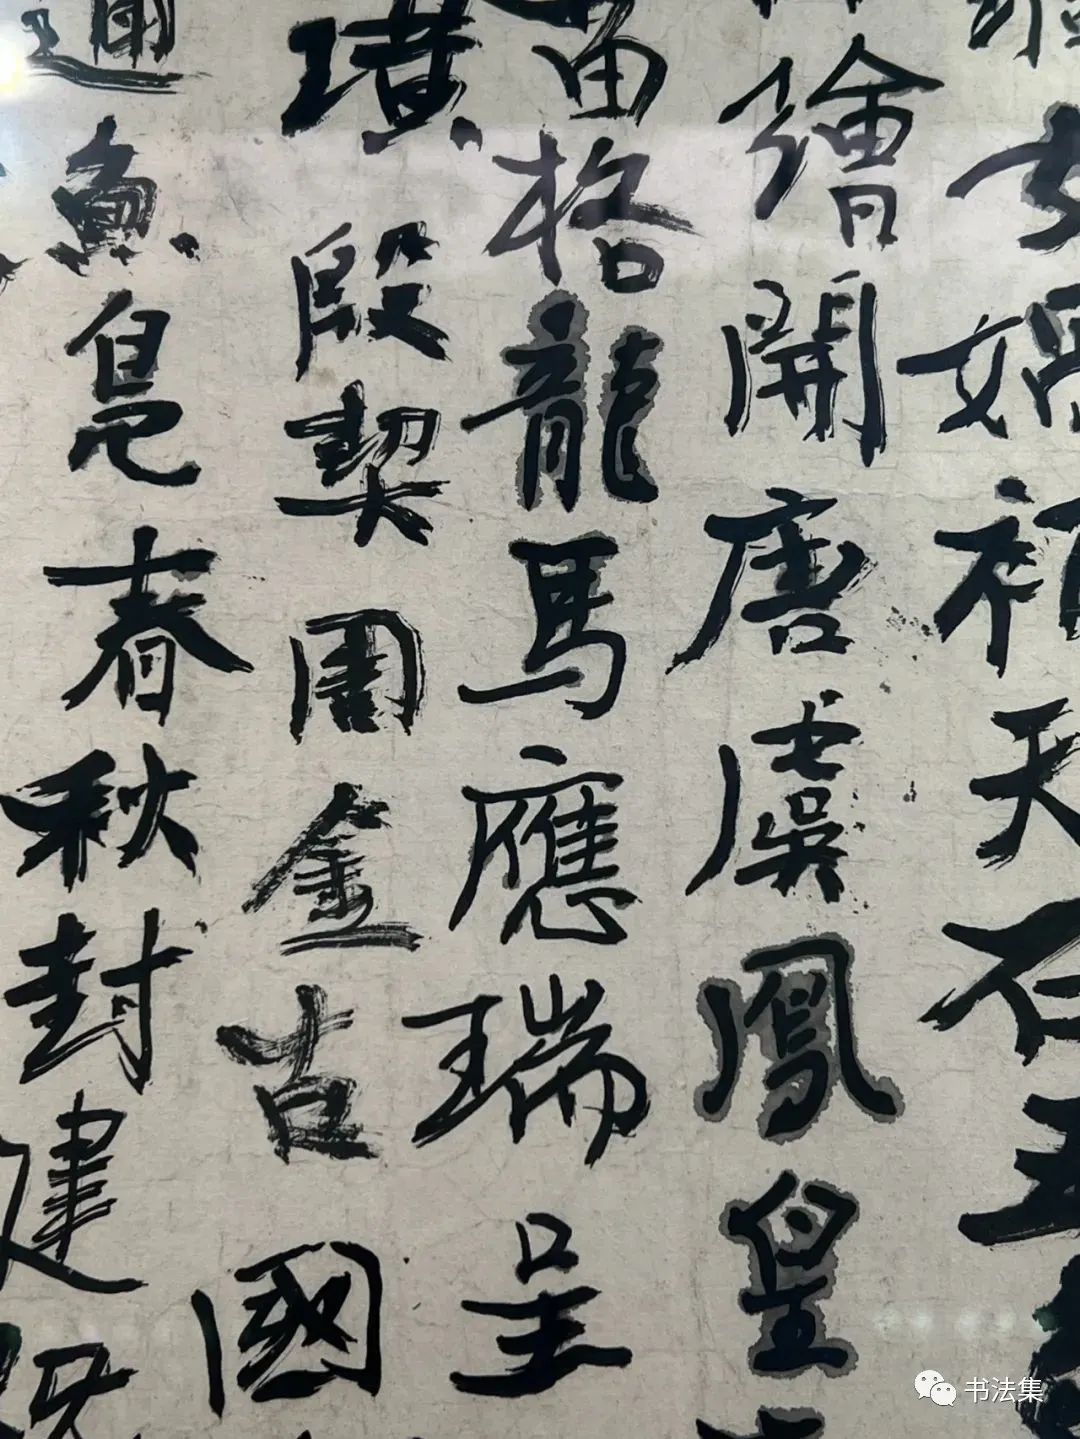 女媧補天石五
繪開唐虞鳳皇
苗格龍馬應瑞呈
璜殷契周金古國
通魚鳧春秋封建
书法集